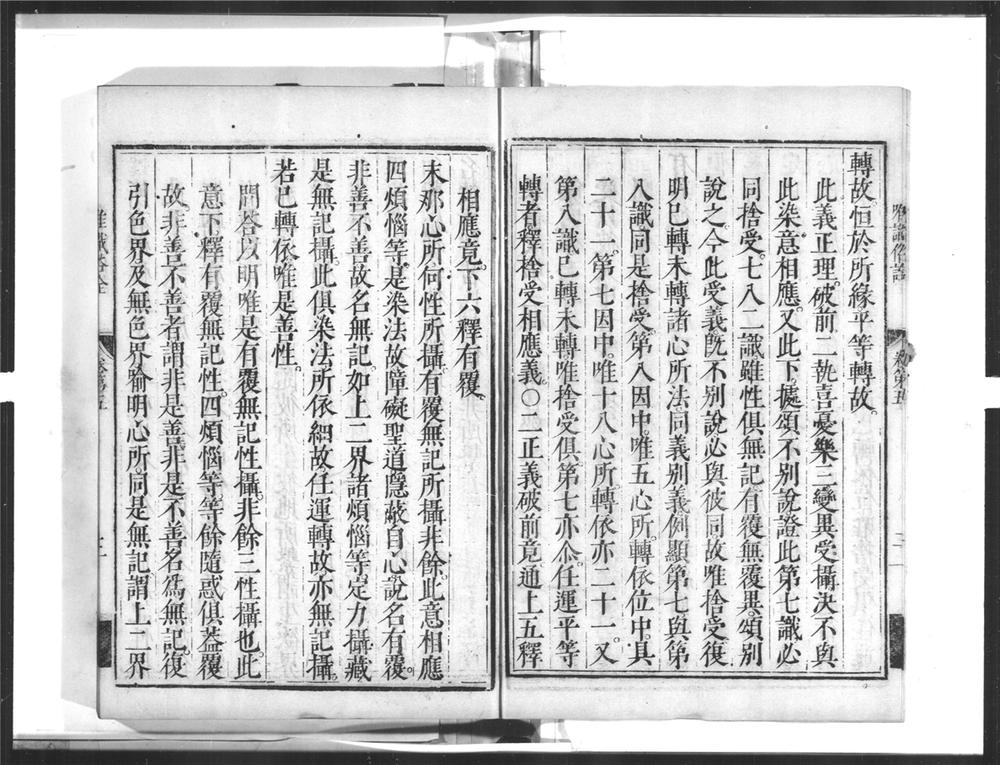 轉故恒於所緣平等轉故。
此義正理。破前二執喜憂樂三變異受攝決不與
此染意相應。又此下。據頌不別說證此第七識必
同捨受。七八二識雖性俱無記有覆無覆異。頌別
說之。今此受義既不別說必與彼同故唯捨受。復
明巳轉未轉諸心所法同義別義例顯第七與第
八識同是捨受。第八因中。唯五心所。轉依位中。具
二十一。第七因中。唯十八心所。轉依亦二十一。又
第八識巳轉未轉唯捨受俱。第七亦尒。任運平等
轉者釋捨受相應義。○二正義破前竟。通上五釋
相應竟。下六釋有覆。
末那心所何性所攝。有覆無記所攝非餘。此意相應
四煩惱等是染法故。障礙聖道。隱蔽自心。說名有覆。
非善不善故名無記。如上二界諸煩惱等定力攝藏
是無記攝。此俱染法所依細故任運轉故亦無記攝。
若巳轉依唯是善性。
問答以明唯是有覆無記性攝。非餘三性攝也。此
意下。釋有覆無記性。四煩惱等。等餘隨惑俱葢覆
故。非善不善者謂非是善非是不善名爲無記。復
引色界及無色界喻明心所同是無記。謂上二界
卷第五